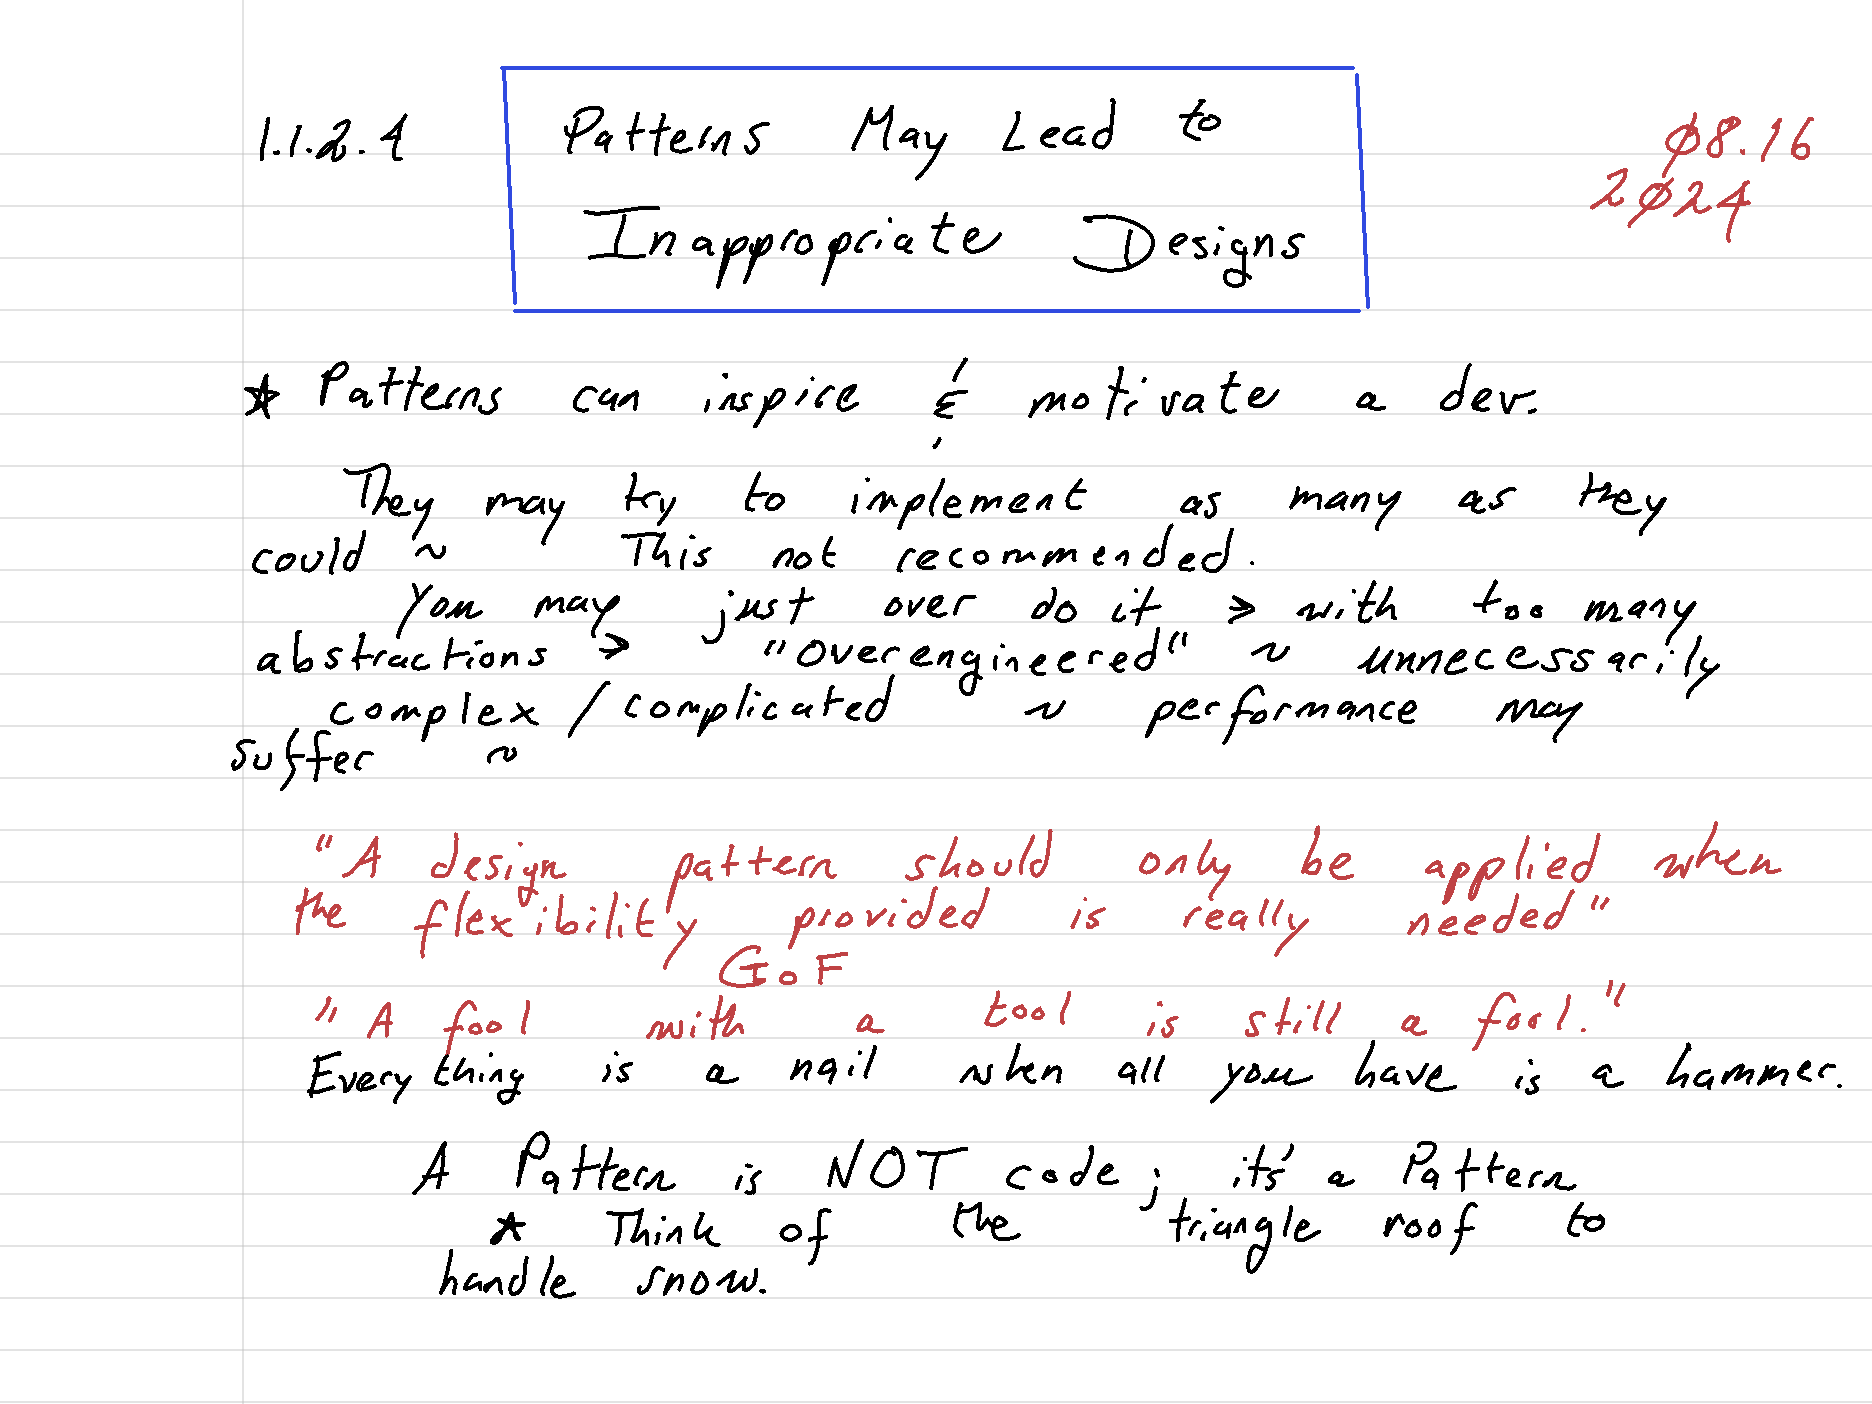 1.1.2.4 Patterns May Lead to
Inappropriate Designs
Ø8.16
2Ø24
★ Patterns can inspire & motivate a dev.
They may try to implement as many as they
could ~ This not recommended.
You may just over do it → with too many
abstractions → "Overengineered" ~ unnecessarily
complex / complicated ~ performance may
suffer ~
"A design pattern should only be applied when
the flexibility provided is really needed"
GoF
"A fool with a tool is still a fool."
Everything is a nail when all you have is a hammer.
A Pattern is NOT code; it's a Pattern
★ Think of the triangle roof to
handle snow.